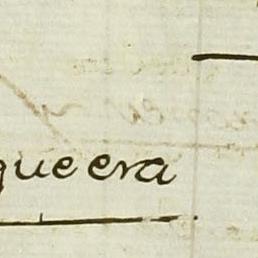 que era